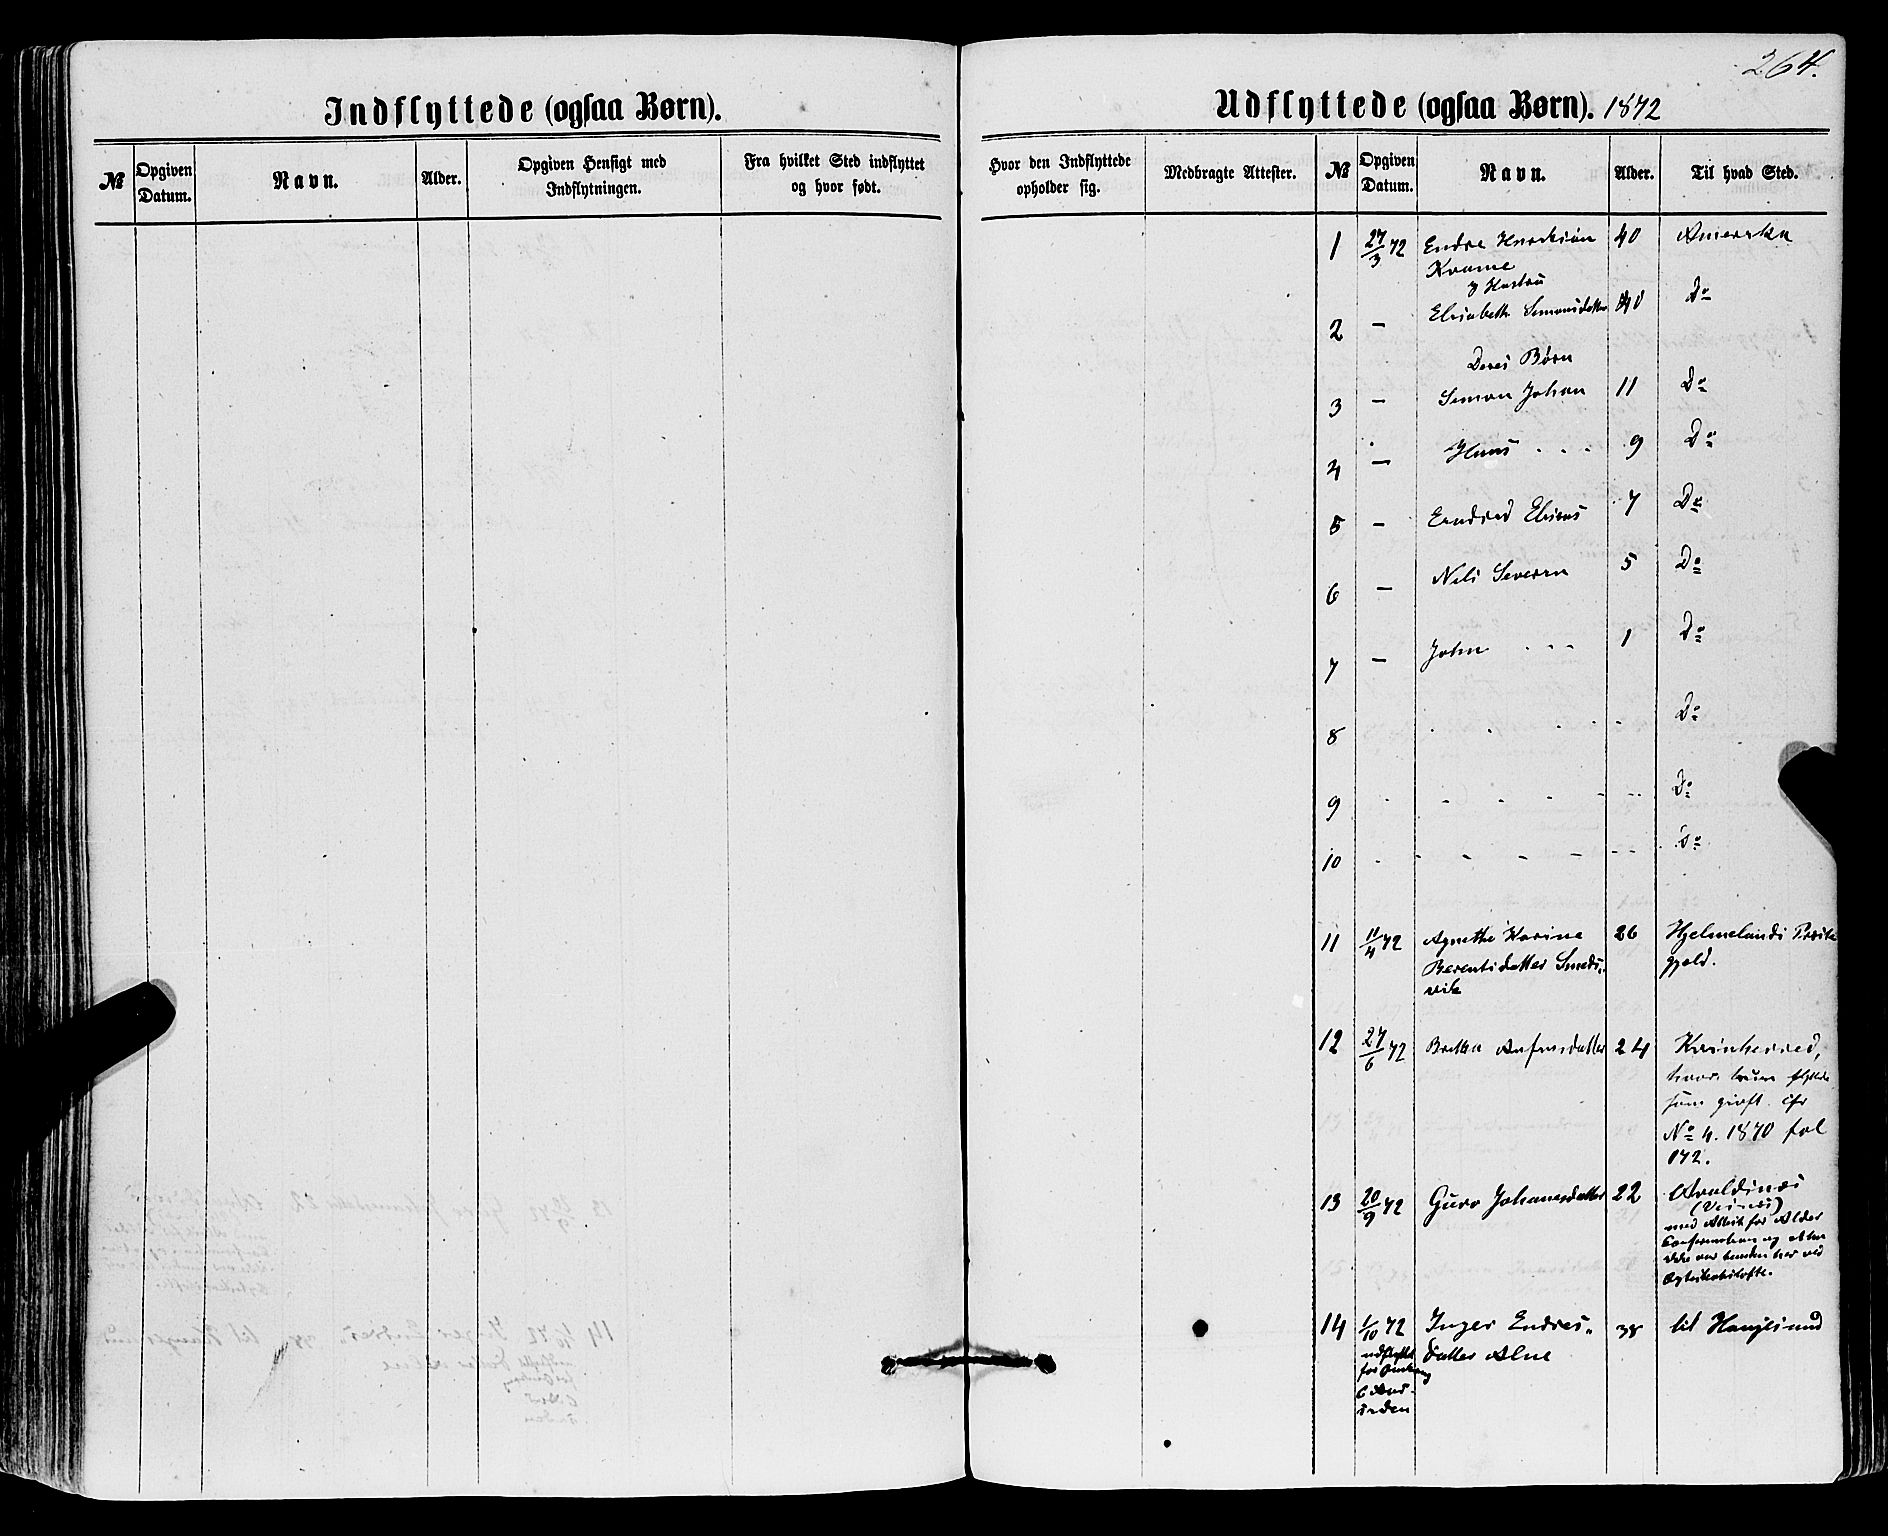 264.
Indflyttede (ogsaa Børn).
Udflyttede (ogsaa Børn). 1872
№
Opgiven Datum.
Navn.
Alder.
Opgiven Hensigt med Indflytningen.
Fra hvilket Sted indflyttet og hvor født.
Hvor den Indflyttede opholder sig.
Medbragte Attester.
№
Opgiven Datum.
Navn.
Alder.
Til hvad Sted.
1 27/3 72 Endre 40 Amerika
& Hustru
2 — Elisabeth Simonsdatter 40 Do
Deres Børn
3 — Simon Johan 11 Do
4 — Hans . . . 9 Do
5 — Elias 7 Do
6 — Nels Severin 5 Do
7 — John . . . 1 Do
8 Do
9 Do
10 Do
11 11/4 72 Agnethe Karine 26 Hjelmelands Præste
Berentsdatter Smeds„ gjeld.
vik
12 27/6 72 24 Kvinherred,
hvor
som gift cfr
No 4. 1870 fol
172.
13 20/9 72 Guro Johannesdatter 22 Avaldsnæs
med Attest for Alder
Confirmation og
14 1/10 72 Inger Endres„ 38 til Haugesund
udflyttet datter Alne
for